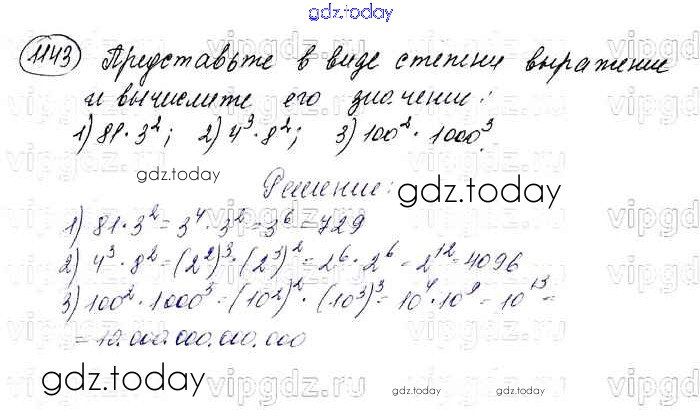 gdz.today
1143 Представьте в виде степени выражение
и вычислите его значение:
1) 81·3²; 2) 4³·8²; 3) 100²·1000³.
gdz.today
Решение:
gdz.today
1) 81·3² = 3⁴·3² = 3⁶ = 729
2) 4³·8² = (2²)³·(2³)² = 2⁶·2⁶ = 2¹² = 4096
3) 100²·1000³ = (10²)²·(10³)³ = 10⁴·10⁹ = 10¹³ =
= 10.000.000.000.000
gdz.today
gdz.today
gdz.today
vipgdz.ru